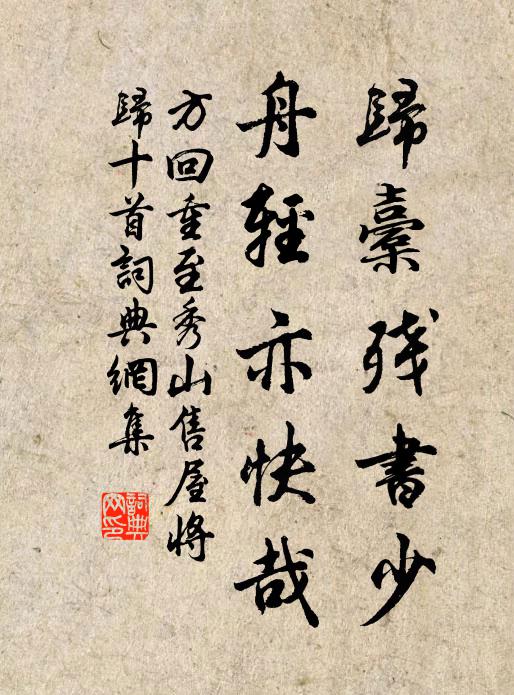 歸橐殘書少
舟輕亦快哉
方回重至秀山售屋將
歸十首詞典網集
詞典
网印